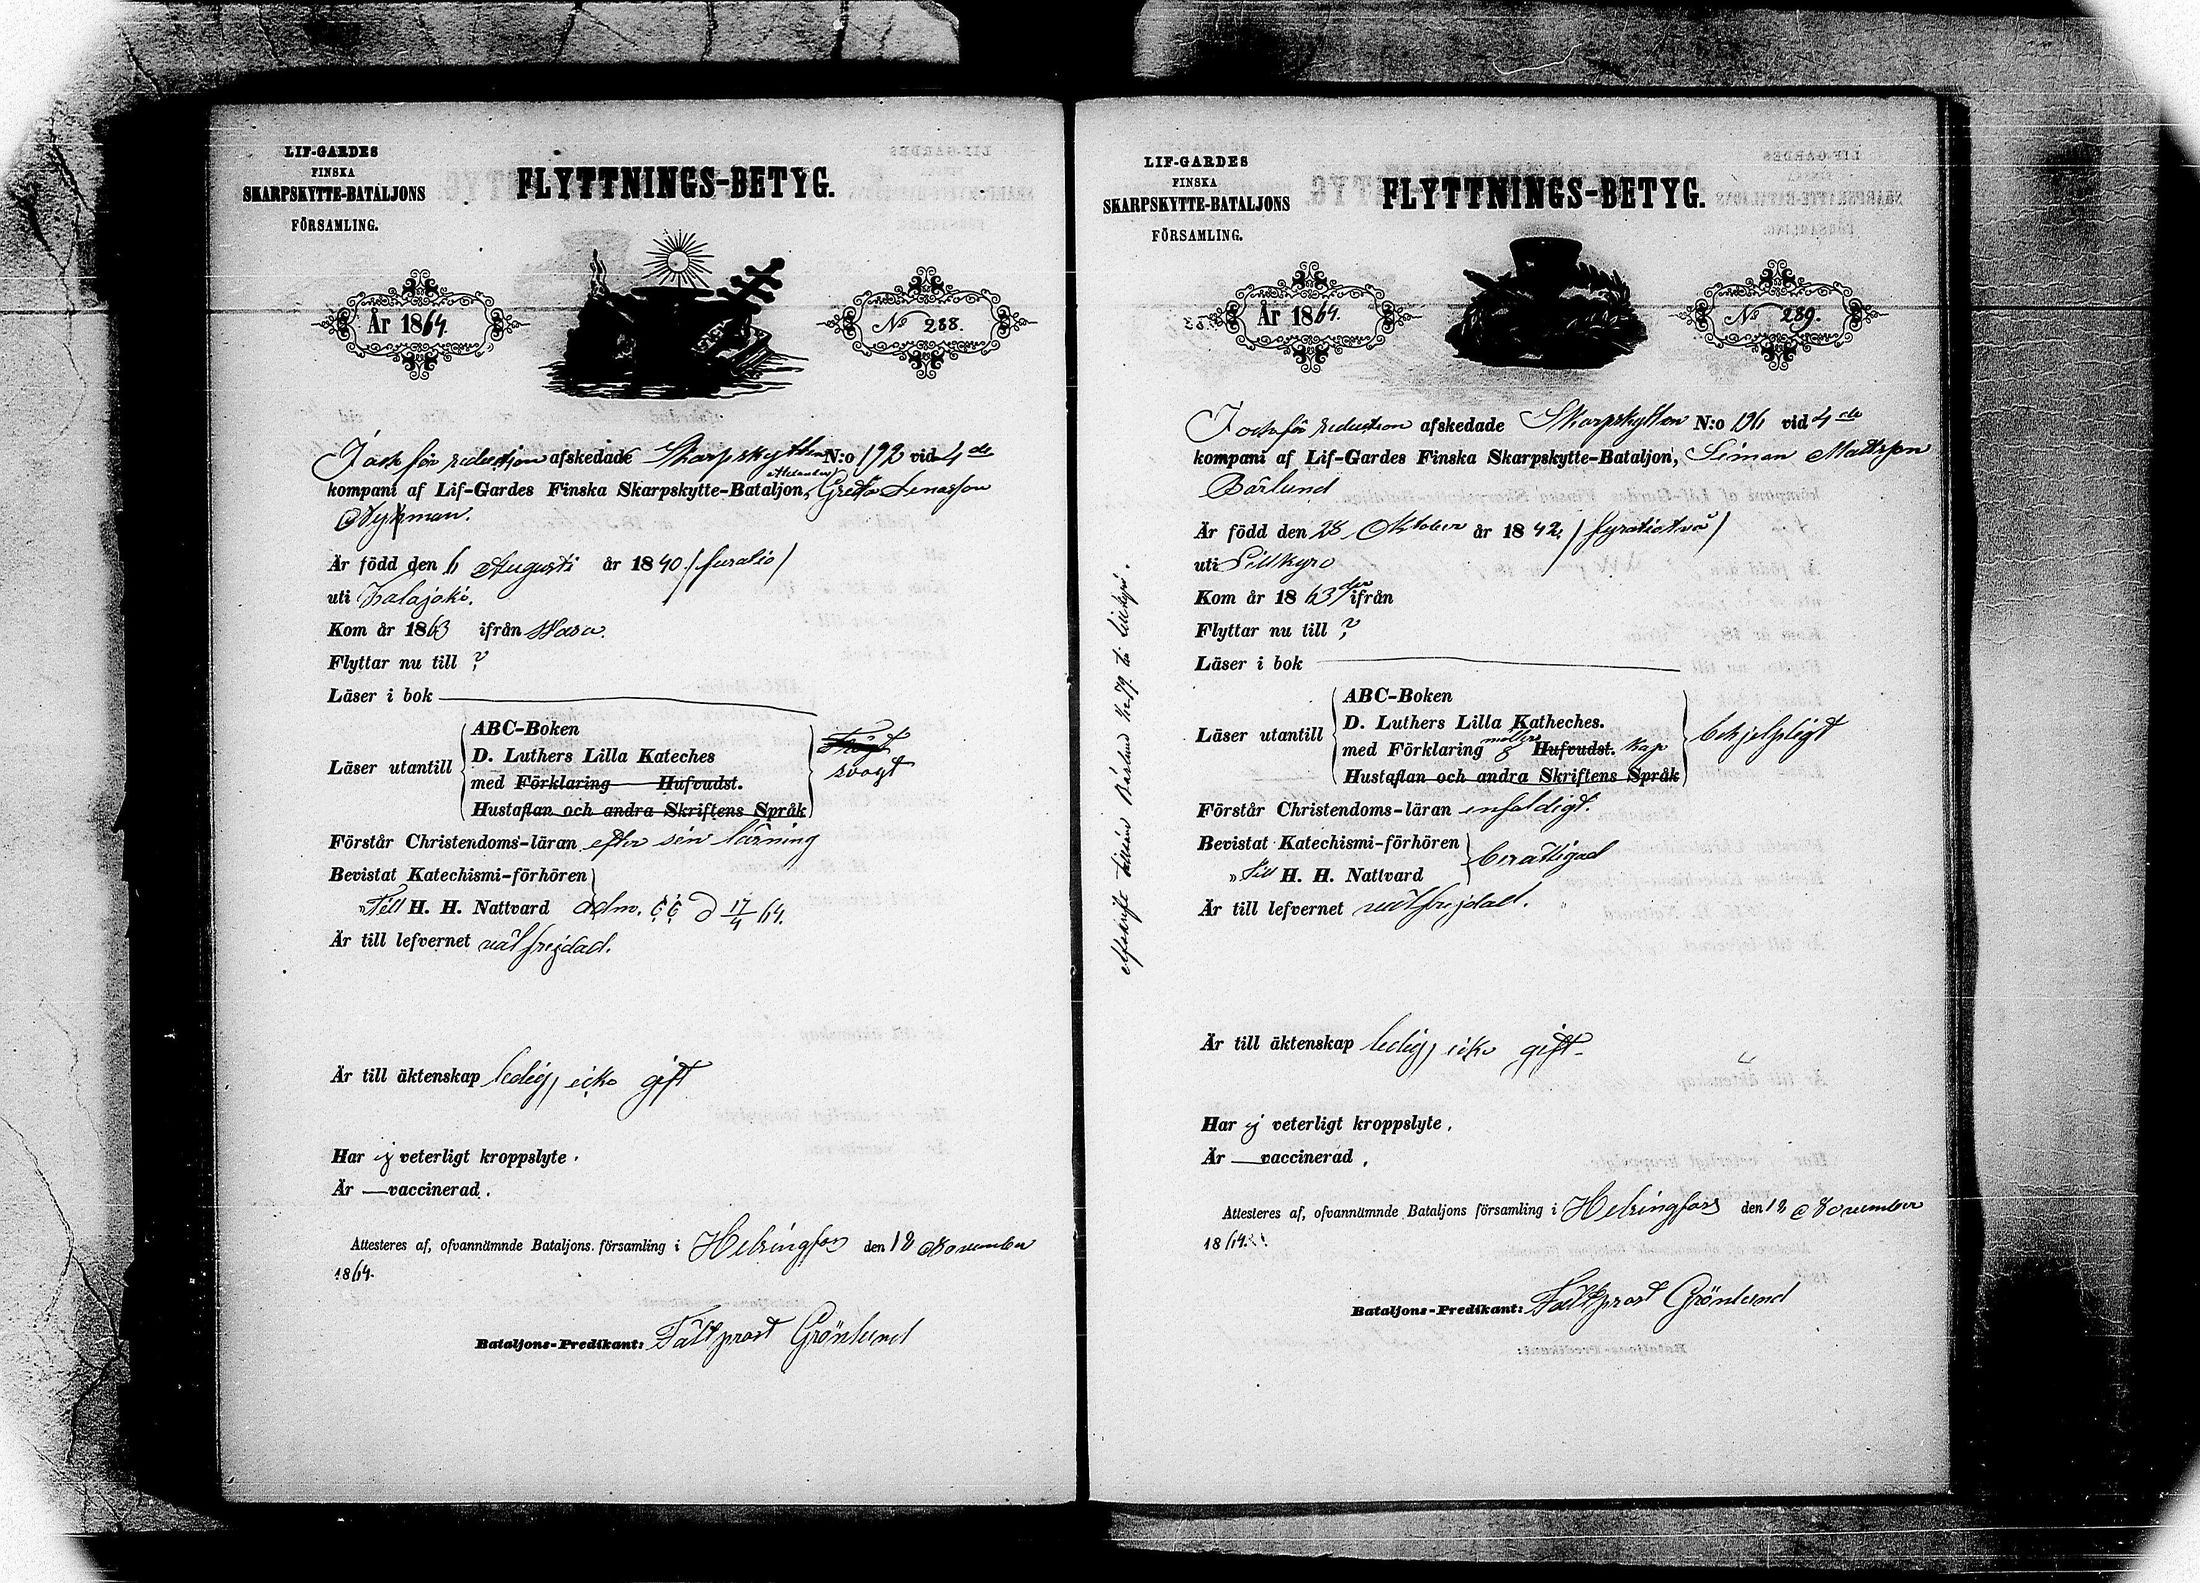 LIF-GARDES
FINSKA
SKARPSKYTTE-BATALJONS
FÖRSAMLING.
FLYTTNINGS-BETYG.
År 1864.
No 288.
för reduction afskedade Skarpskytten N:o 192 vid 4de
kompani af Lif-Gardes Finska Skarpskytte-Bataljon, Greta Lenasson
Nykman.
Är född den 6 Augusti år 1840 /furatio/
uti Kalajoki.
Kom år 1863 ifrån Wasa.
Flyttar nu till ?
Läser i bok
Läser utantill
ABC-Boken
D. Luthers Lilla Kateches
med Förklaring Hufvudst.
Hustaflan och andra Skriftens Språk
Trögt
svagt
Förstår Christendoms-läran efter sin lärning
Bevistat Katechismi-förhören
" Till H. H. Nattvard adm. 17/4 64.
Är till lefvernet välfrejdad.
Är till äktenskap ledig, icke gift
Har ej veterligt kroppslyte.
Är — vaccinerad.
Attesteres af, ofvannämnde Bataljons församling i Helsingfors den 18 November
1864.
Bataljons-Predikant: Fältprost Grönlund
LIF-GARDES
FINSKA
SKARPSKYTTE-BATALJONS
FÖRSAMLING.
FLYTTNINGS-BETYG.
År 1864.
No 289.
för reduction afskedade Skarpskytten N:o 196 vid 4de
kompani af Lif-Gardes Finska Skarpskytte-Bataljon, Simon Mattsson
Bärlund
Är född den 28 Oktober år 1842 /fyratiotvå/
uti Lillkyro
Kom år 1863 der ifrån
Flyttar nu till ?
Läser i bok
Läser utantill
ABC-Boken
D. Luthers Lilla Katheches.
med Förklaring Hufvudst. Kap
Hustaflan och andra Skriftens Språk
behjelpligt
Förstår Christendoms-läran enfaldigt.
Bevistat Katechismi-förhören
" Till H. H. Nattvard
berättigad
Är till lefvernet välfrejdad.
Är till äktenskap ledig, icke gift.
Har ej veterligt kroppslyte.
Är — vaccinerad.
Attesteres af, ofvannämnde Bataljons församling i Helsingfors den 18 November
1864.
Bataljons-Predikant: Fältprost Grönlund
Afskrift Bärlund 79. Lillkyro.